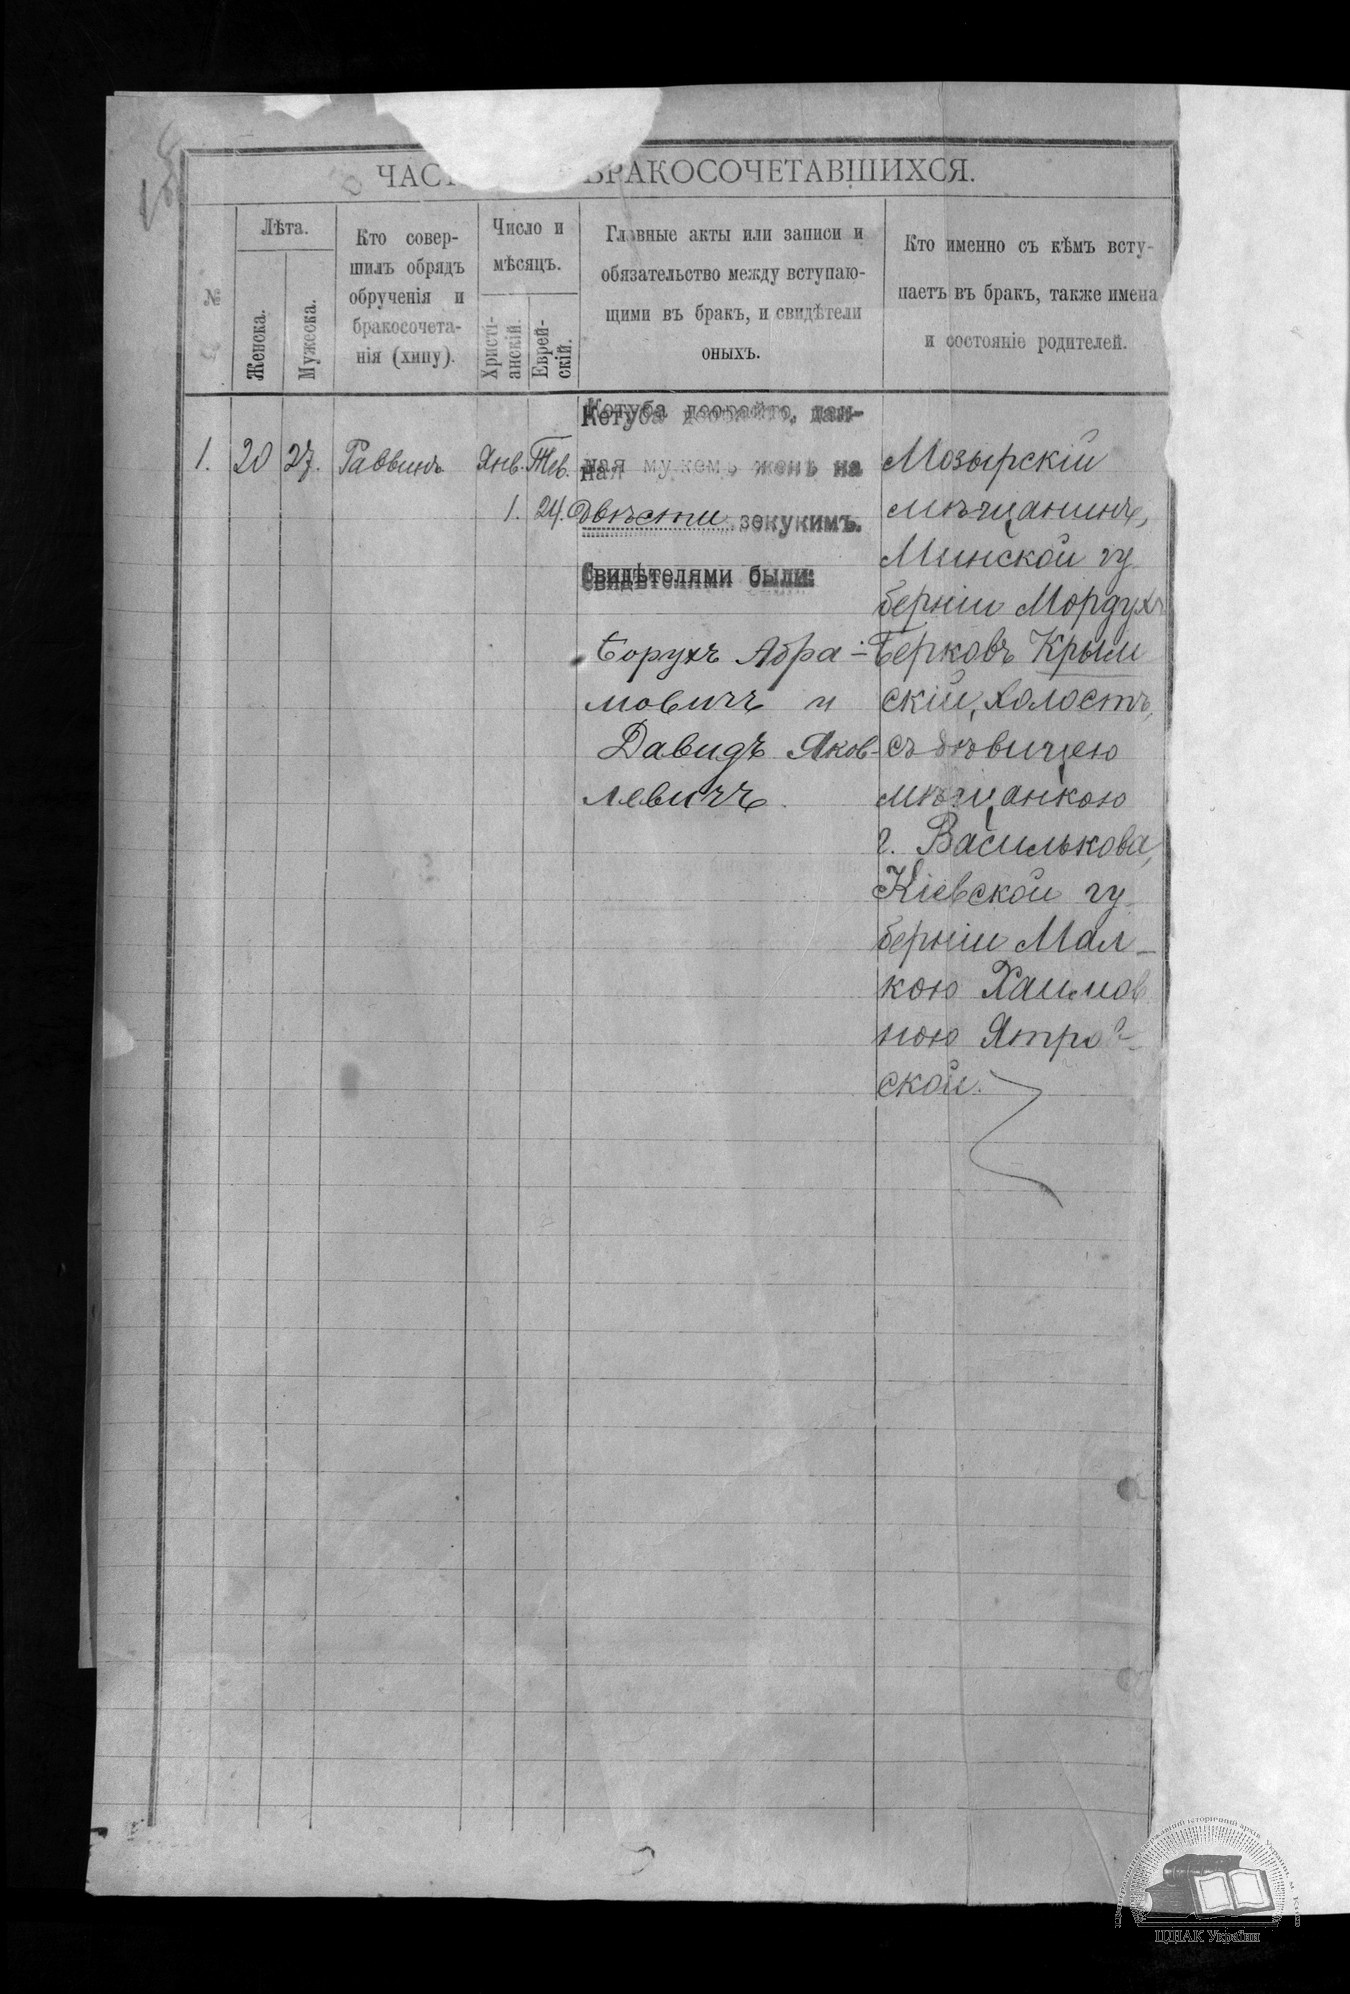 ЧАСТ БРАКОСОЧЕТАВШИХСЯ.
№
Лѣта.
Женска.
Мужеска.
Кто совер-
шилъ обрядъ
обрученія и
бракосочета-
нія (хипу).
Число и
мѣсяцъ.
Христі-
анскій.
Еврей-
скій.
Главные акты или записи и
обязательство между вступаю-
щими въ бракъ, и свидѣтели
оныхъ.
Кто именно съ кѣмъ всту-
паетъ въ бракъ, также имена
и состояніе родителей.
1. 20 27. Раввинъ Янв. Тев.
1. 24.
Кетуба деорайто, дан-
ная мужемъ женѣ на
двѣсти зекукимъ.
Свидѣтелями были:
Борухъ Абра-
мовичъ и
Давидъ Яков-
левичъ.
Мозырскій
мѣщанинъ,
Минской гу
берніи Мордухъ
Берковъ Крым
скій, холостъ,
съ дѣвицею
мѣщанкою
г. Василькова,
Кіевской гу
берніи Мал-
кою Хаимов
ною Ятров-
ской.
ЦДІАК України